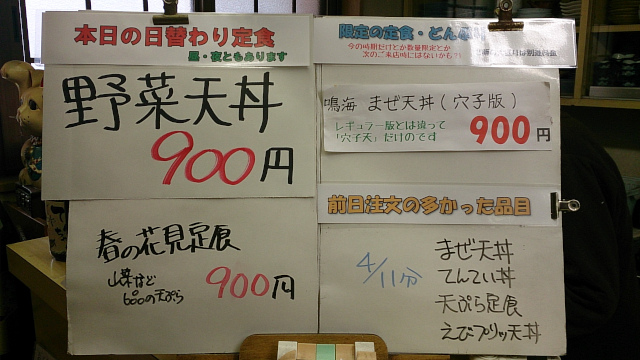 本日の日替わり定食
昼・夜ともあります
野菜天丼
900円
春の花見定食
山菜など
900円
限定の定食・どんぶり
今の時期だけとか数量限定とか
次のご来店時にはないかも?!
鳴海 まぜ天丼(穴子版)
レギュラー版とは違って
「穴子天」だけのです
900円
前日注文の多かった品目
4/11分
まぜ天丼
てんてい丼
天ぷら定食
えびプリッ天丼